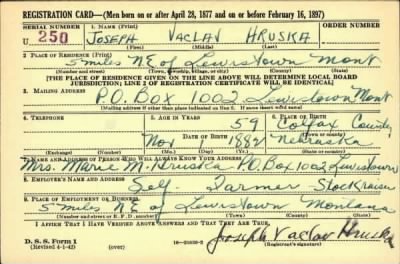 REGISTRATION CARD—(Men born on or after April 28, 1877 and on or before February 16, 1897)
SERIAL NUMBER 1. NAME (Print)
U 250 JOSEPH VACLAV HRUSKA
(First) (Middle) (Last)
2. PLACE OF RESIDENCE (Print)
5 miles NE of Lewistown Mont
(Number and street) (Town, township, village, or city) (County) (State)
[THE PLACE OF RESIDENCE GIVEN ON THE LINE ABOVE WILL DETERMINE LOCAL BOARD
JURISDICTION; LINE 2 OF REGISTRATION CERTIFICATE WILL BE IDENTICAL]
3. MAILING ADDRESS
P.O. Box 1002 Lewistown Mont
[Mailing address if other than place indicated on line 2. If same insert word same]
4. TELEPHONE 5. AGE IN YEARS 6. PLACE OF BIRTH
59 Colfax County
DATE OF BIRTH (Town or county)
Nov 1882 Nebraska
(Exchange) (Number) (Mo.) (Day) (Yr.) (State or country)
7. NAME AND ADDRESS OF PERSON WHO WILL ALWAYS KNOW YOUR ADDRESS
Mrs. Marie M. Hruska P.O. Box 1002 Lewistown
8. EMPLOYER'S NAME AND ADDRESS
Self - Farmer Stockraiser
9. PLACE OF EMPLOYMENT OR BUSINESS
5 miles NE of Lewistown Montana
(Number and street or R. F. D. number) (Town) (County) (State)
I AFFIRM THAT I HAVE VERIFIED ABOVE ANSWERS AND THAT THEY ARE TRUE.
Joseph Vaclav Hruska
D. S. S. Form 1
(Revised 4-1-42) (over) (Registrant's signature)